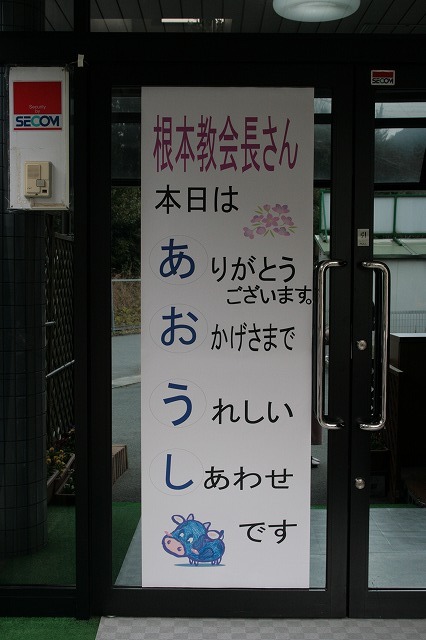 Security by
SECOM
SECOM
根本教会長さん
本日は
ありがとう
ございます。
おかげさまで
うれしい
しあわせ
です